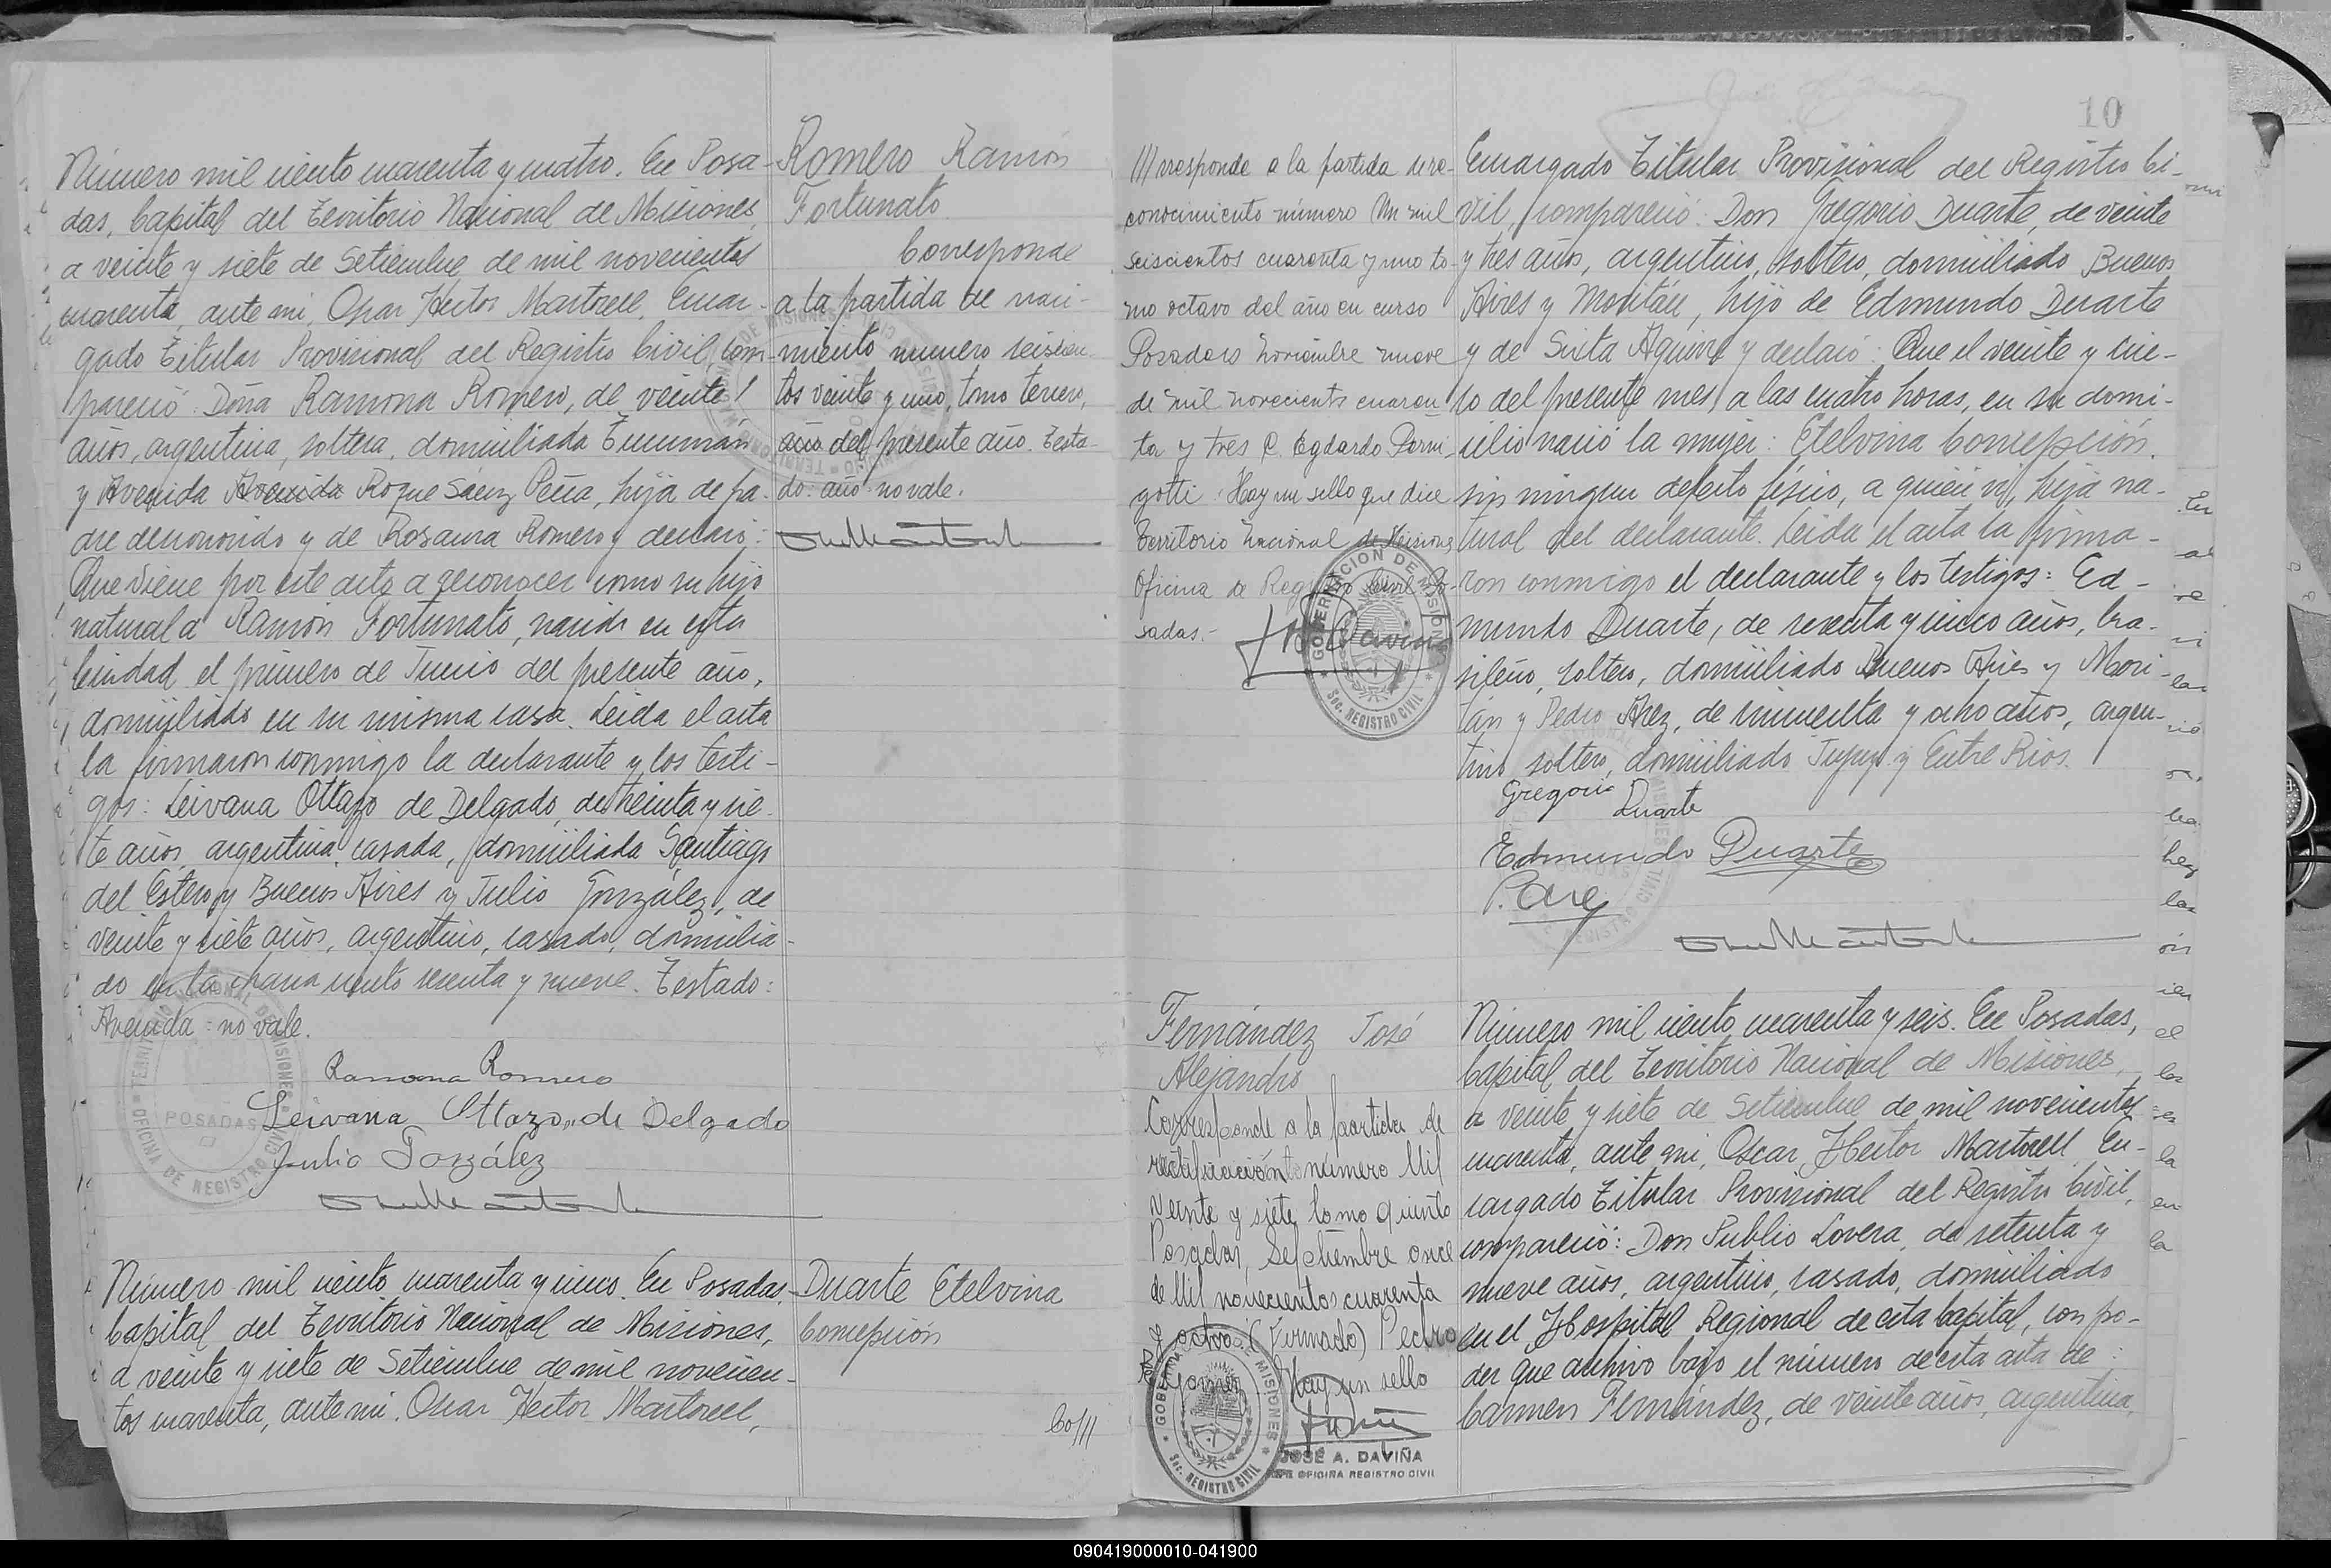 Número mil ciento cuarenta y cuatro. En Posa-
das, Capital del Territorio Nacional de Misiones,
a veinte y siete de Setiembre de mil novecientos
cuarenta, ante mi, Oscar Hector Martorell, Encar-
gado Titular Provisional del Registro Civil, com-
pareció: Doña Ramona Romero, de veinte
años, argentina, soltera, domiciliada Tucumán
y Avenida Avenida Roque Sáenz Peña, hija de pa-
dre desconocido y de Rosaura Romero y declaró:
Que viene por este acto a reconocer como su hijo
natural a Ramón Fortunato, nacido en esta
Ciudad el primero de Junio del presente año,
domiciliado en su misma casa. Leida el acta
la firmaron conmigo la declarante y los testi-
gos: Leivana Ottazo de Delgado, de treinta y sie-
te años, argentina, casada, domiciliada Santiago
del Estero y Buenos Aires y Julio González, de
veinte y siete años, argentino, casado, domicilia-
do en la chacra ciento sesenta y nueve. Testado:
Avenida: no vale.
Ramona Romero
Leivana Ottazo de Delgado
Julio González
Romero Ramón
Fortunato
Corresponde
a la partida de naci-
miento numero seiscien-
tos veinte y uno, tomo tercero,
año del presente año. Testa-
do: año: no vale.
TERRITORIO NACIONAL DE MISIONES
OFICINA DE REGISTRO CIVIL
POSADAS
Número mil ciento cuarenta y cinco. En Posadas,
Capital del Territorio Nacional de Misiones,
a veinte y siete de Setiembre de mil novecien-
tos cuarenta, ante mi, Oscar Hector Martorell,
Duarte Etelvina
Concepción
Co///
10
///rresponde a la partida de re-
conocimiento número Un mil
seiscientos cuarenta y uno to-
mo octavo del año en curso
Posadas Noviembre nueve
de mil novecientos cuaren-
ta y tres C. Egdardo Pomi-
gotti. Hay un sello que dice
Territorio Nacional de Misiones
Oficina de Registro Civil Po-
sadas.-
GOBERNACION DE MISIONES
Sec. REGISTRO CIVIL
Encargado Titular Provisional del Registro Ci-
vil, compareció: Don Gregorio Duarte, de veinte
y tres años, argentino, soltero, domiciliado Buenos
Aires y Moritán, hijo de Edmundo Duarte
y de Sixta Aguirre y declaró: Que el veinte y cin-
co del presente mes, a las cuatro horas, en su domi-
cilio nació la mujer: Etelvina Concepción,
sin ningun defecto físico, a quien vi, hija na-
tural del declarante. Leida el acta la firma-
ron conmigo el declarante y los testigos: Ed-
mundo Duarte, de sesenta y cinco años, bra-
sileño, soltero, domiciliado Buenos Aires y Mori-
tán y Pedro Arez, de cincuenta y ocho años, argen-
tino, soltero, domiciliado Jujuy y Entre Rios.
Gregorio
Duarte
Edmundo Duarte
P. Are
Fernández José
Alejandro
Corresponde a la partida de
rectificación número Mil
veinte y siete tomo quinto
Posadas, Septiembre once
de Mil novecientos cuarenta
y ocho. (Firmado) Pedro
Hay un sello
GOBERNACION DE MISIONES
Sec. REGISTRO CIVIL
JOSÉ A. DAVIÑA
JEFE OFICINA REGISTRO CIVIL
Número mil ciento cuarenta y seis. En Posadas,
Capital del Territorio Nacional de Misiones,
a veinte y siete de Setiembre de mil novecientos
cuarenta, ante mi, Oscar Hector Martorell, En-
cargado Titular Provisional del Registro Civil,
compareció: Don Publio Lovera, de setenta y
nueve años, argentino, casado, domiciliado
en el Hospital Regional de esta Capital, con po-
der que archivo bajo el número de esta acta de:
Carmen Fernández, de veinte años, argentina,
090419000010-041900